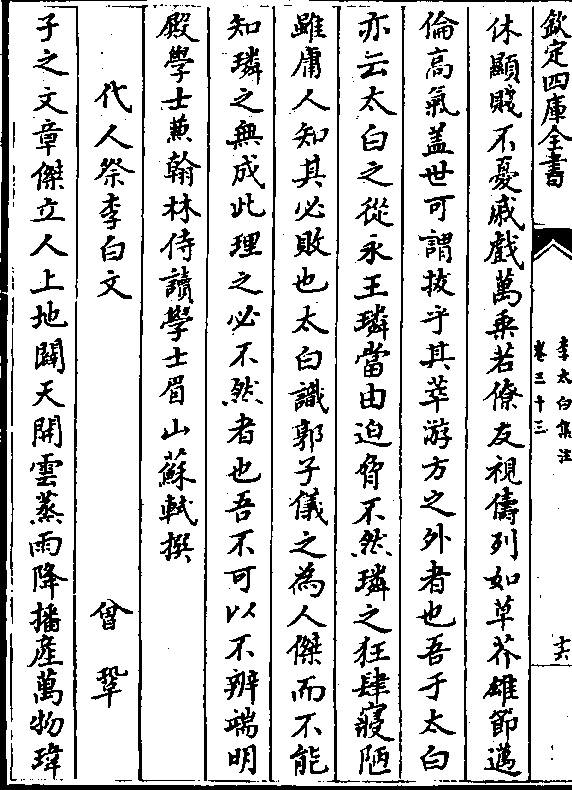 欽定四庫全書
李太白集注
卷三十三
十六
休顯賤不憂戚戲萬乘若僚友視儔列如草芥雄節邁
倫高氣蓋世可謂拔乎其萃游方之外者也吾于太白
亦云太白之從永王璘當由迫脅不然璘之狂肆寢陋
雖庸人知其必敗也太白識郭子儀之為人傑而不能
知璘之無成此理之必不然者也吾不可以不辨端明
殿學士兼翰林侍讀學士眉山蘇軾撰
代人祭李白文 曾鞏
子之文章傑立人上地闢天開雲蒸雨降播產萬物瑋